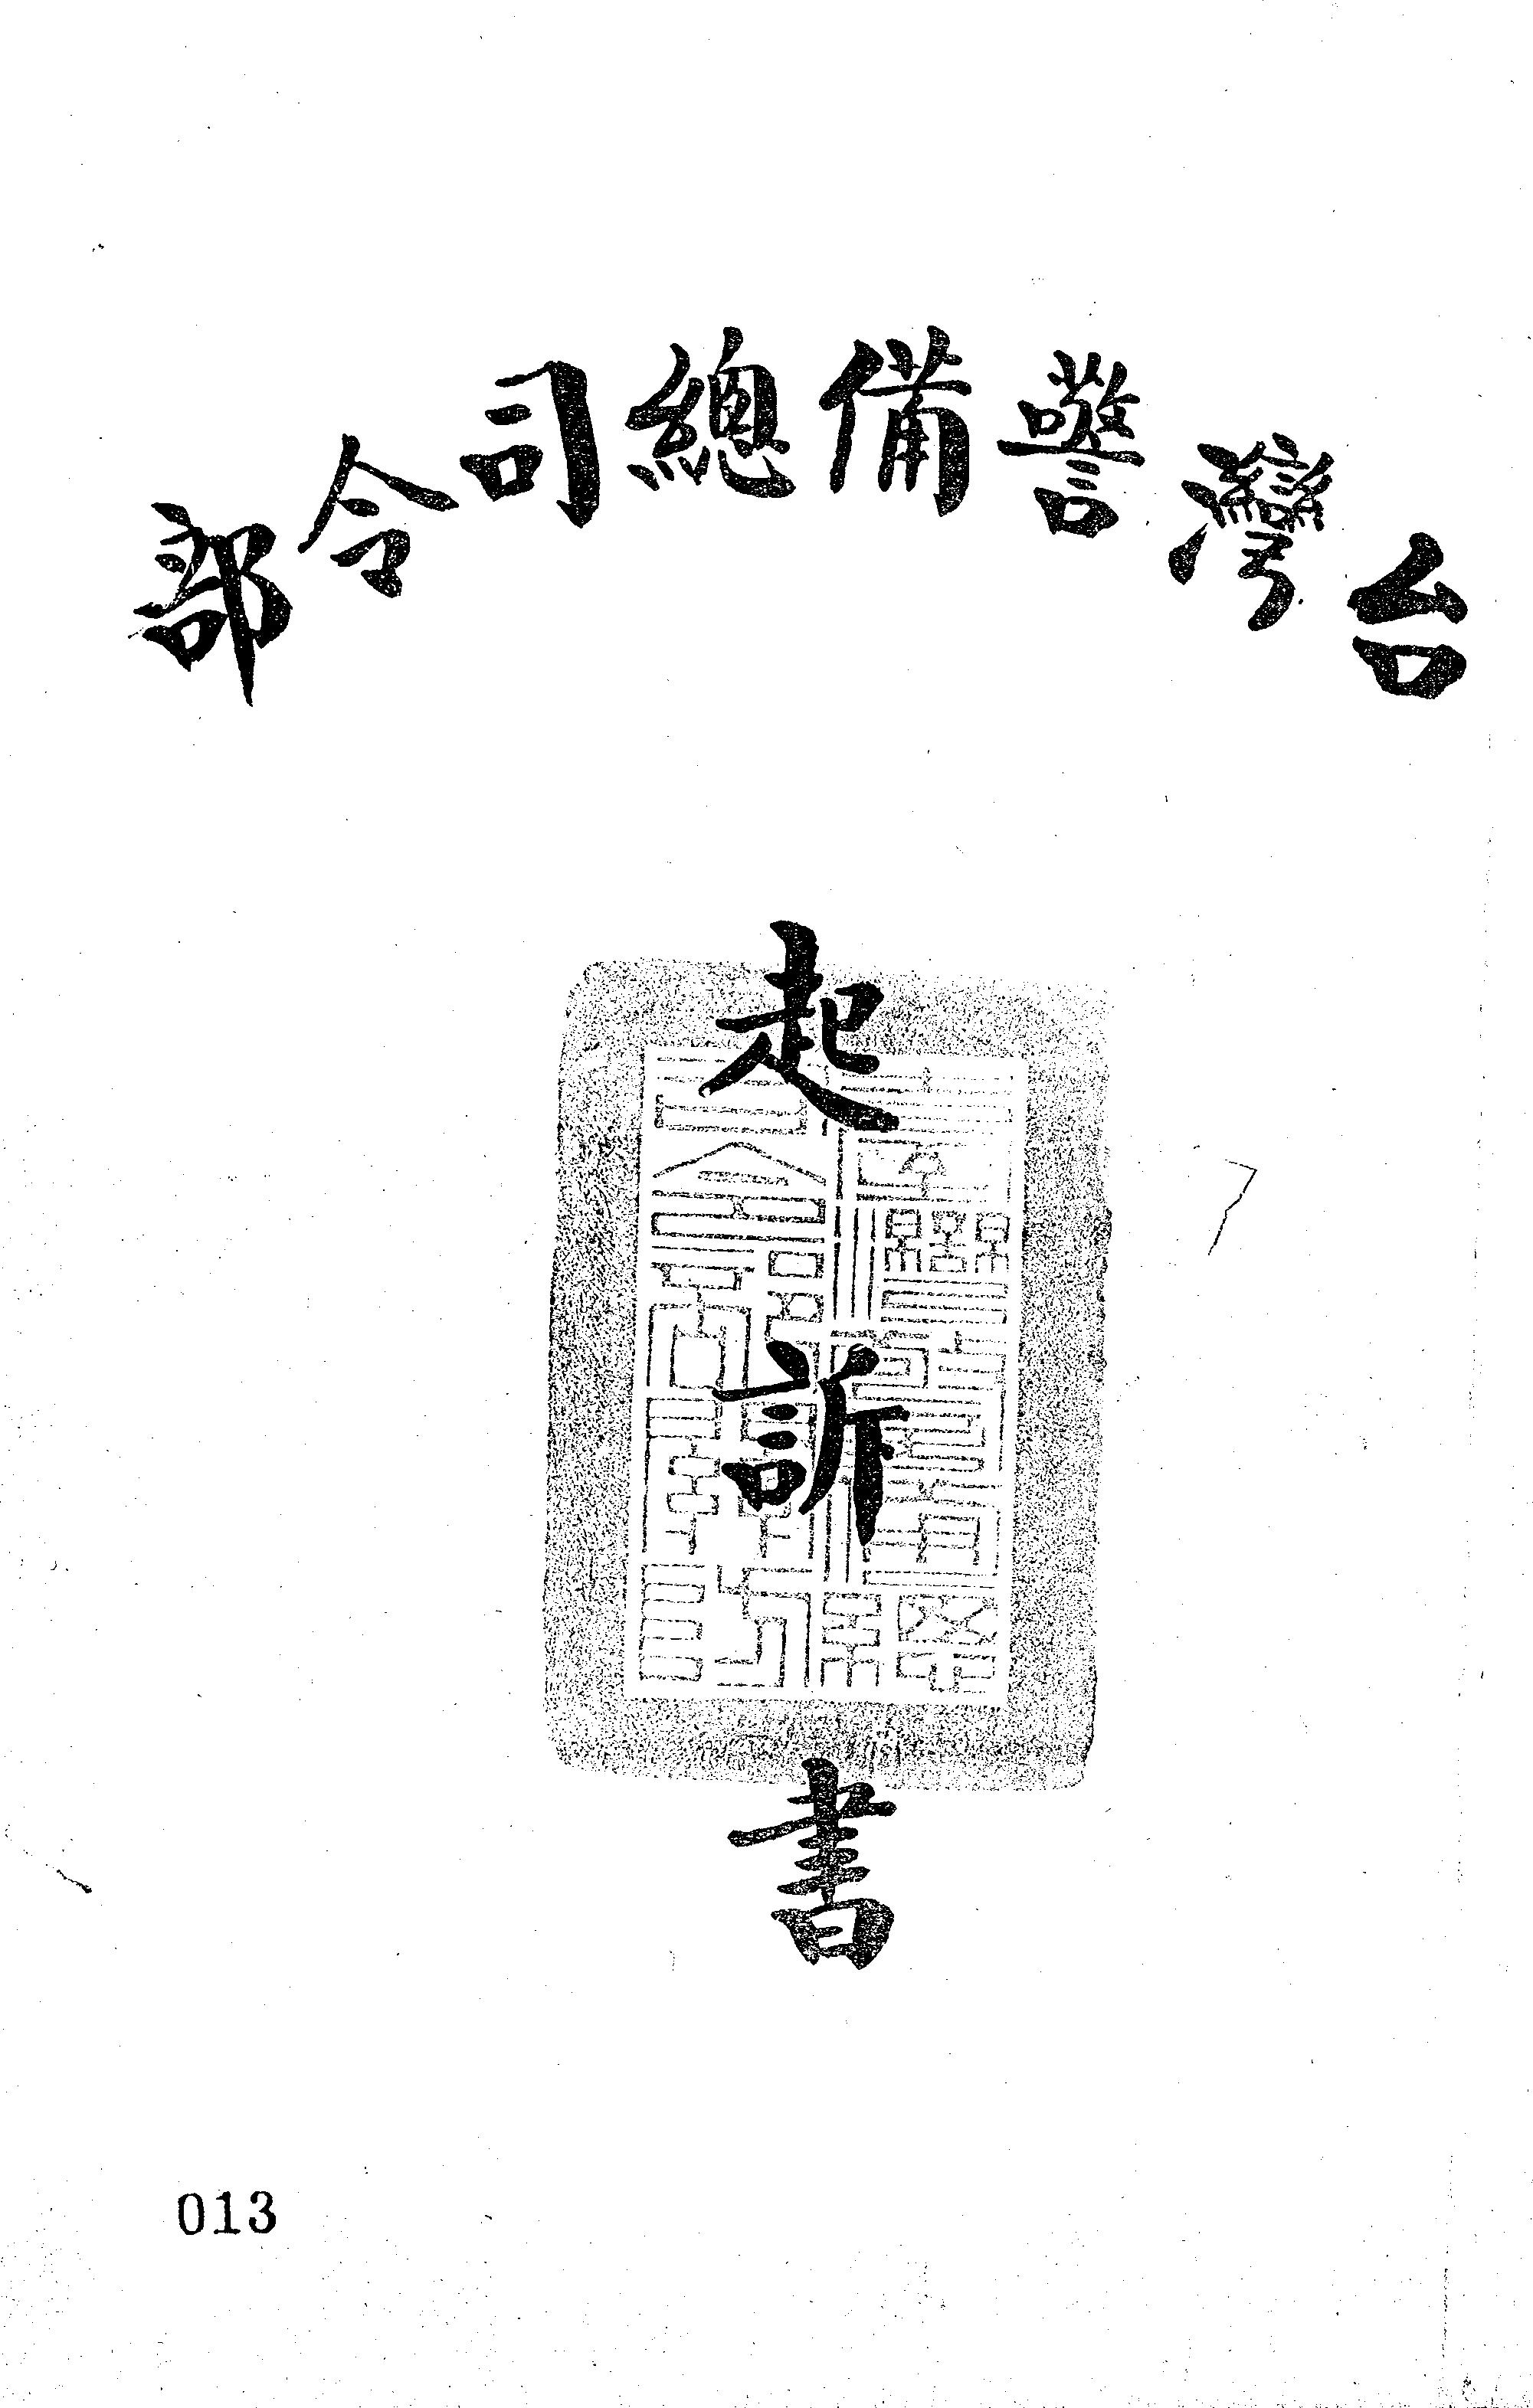 台灣警備總司令部
起訴書
013